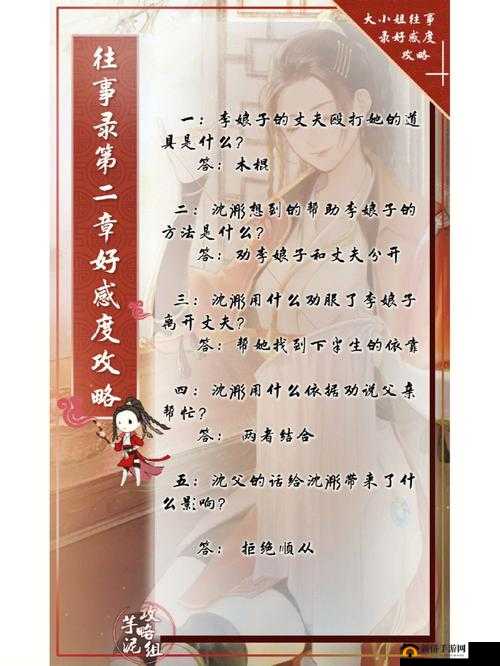 大小姐往事
录好感度
攻略
往事录第二章好感度攻略
一：李娘子的丈夫殴打她的道
具是什么？
答：木棍
二：沈渺想到的帮助李娘子的
方法是什么？
答：劝李娘子和丈夫分开
三：沈渺用什么劝服了李娘子
离开丈夫？
答：帮她找到下半生的依靠
四：沈渺用什么依据劝说父亲
帮忙？
答：两者结合
五：沈父的话给沈渺带来了什
么影响？
答：拒绝顺从
芋泥
攻略组